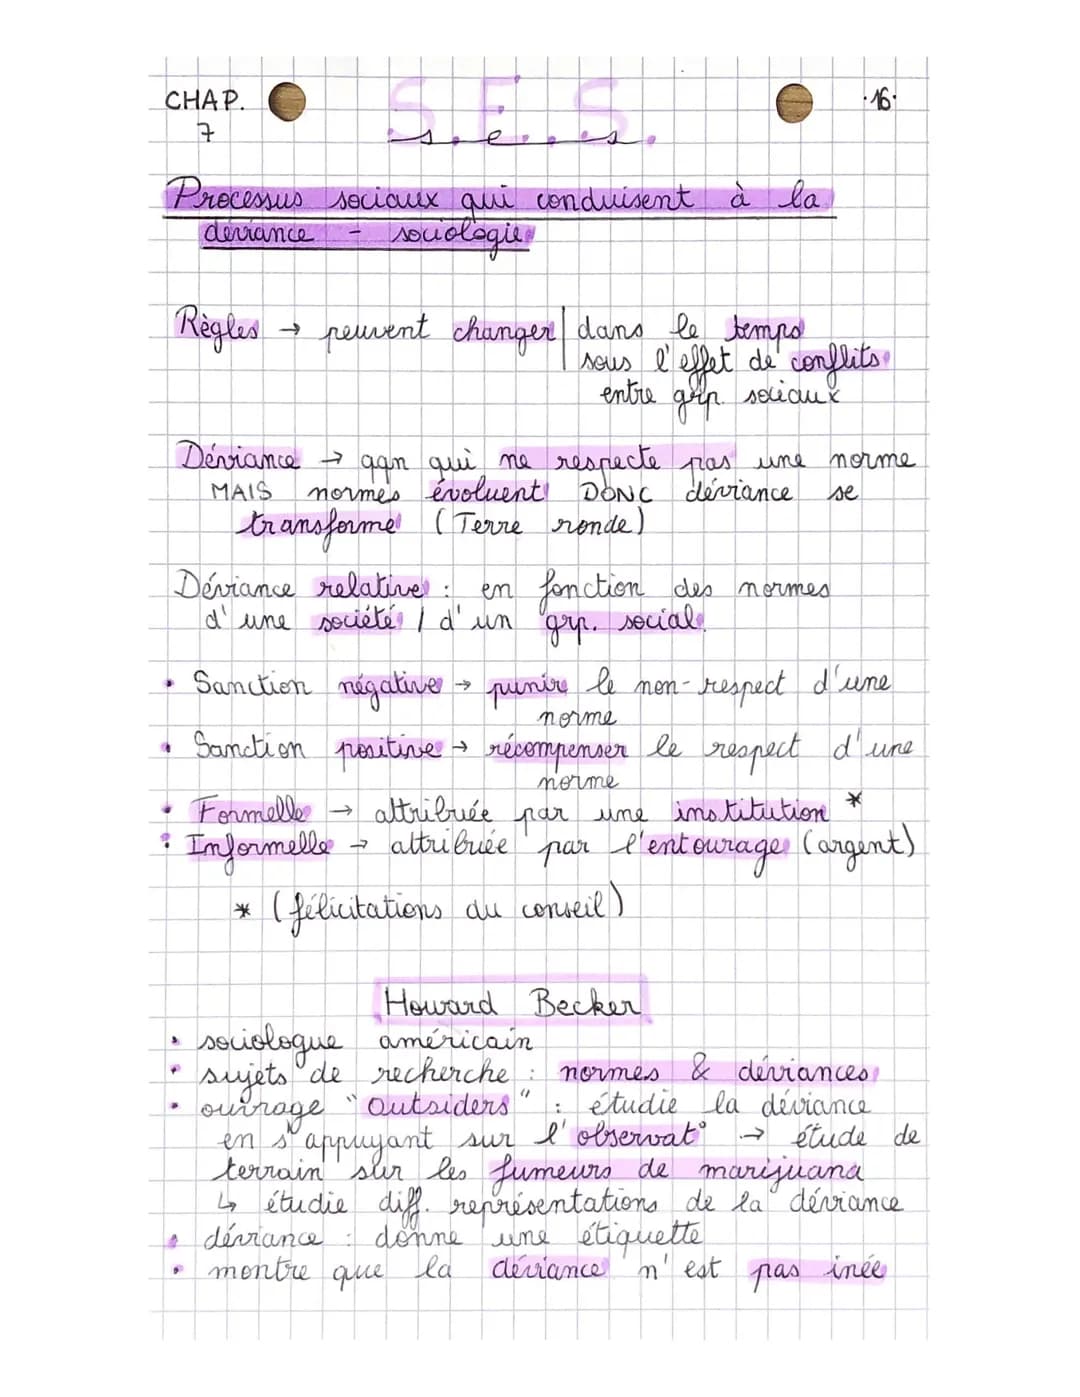 CHAP.
7
S.E.S.
s. e. s.
·16·
Processus sociaux qui conduisent à la
déviance - sociologie
Règles → peuvent changer | dans le temps
sous l'effet de conflits
entre grp. sociaux
Déviance → qqn qui ne respecte pas une norme
MAIS normes évoluent DONC déviance se
transforme (Terre ronde)
Déviance relative : en fonction des normes
d'une société / d'un grp. social.
• Sanction négative → punir le non-respect d'une
norme
• Sanction positive → récompenser le respect d'une
norme
• Formelle → attribuée par une institution *
• Informelle → attribuée par l'entourage (argent)
* (félicitations du conseil)
Howard Becker
• sociologue américain
• sujets de recherche : normes & déviances
• ouvrage "Outsiders" : étudie la déviance
en s'appuyant sur l'observat° → étude de
terrain sur les fumeurs de marijuana
↳ étudie diff. représentations de la déviance
• déviance : donne une étiquette
• montre que la déviance n'est pas inée